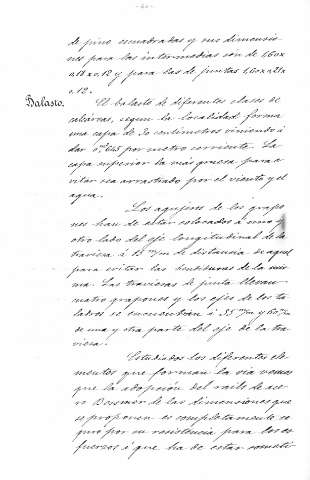 de pino escuadradas y sus dimensio-
nes para las intermedias son de 1,60 x
0,18 x 0,12 y para las de juntas 1,60 x 0,21 x
0,12.
Balasto. El balasto de diferentes clases de
calcáreas, segun la localidad forma
una capa de 30 centímetros viniendo á
dar 0,645 por metro corriente. La
capa superior la más gruesa para e-
vitar sea arrastrado por el viento y el
agua.
Los agujeros de los grapo-
nes han de estar colocados á uno y
otro lado del eje longitudinal de la
traviesa á 15 m/m de distancia de aquel
para evitar las hendiduras de la mis-
ma. Las traviesas de junta llevan
cuatro grapones y los ejes de los ta-
ladros se encuentran á 35 m/m y 60 m/m
de una y otra parte del eje de la tra-
viesa.
Estudiados los diferentes ele-
mentos que forman la vía vemos
que la adopción del rails de ace-
ro Bessmer de las dimensiones que
se proponen es completamente se-
guro por su resistencia para los es-
fuerzos á que ha de estar someti-